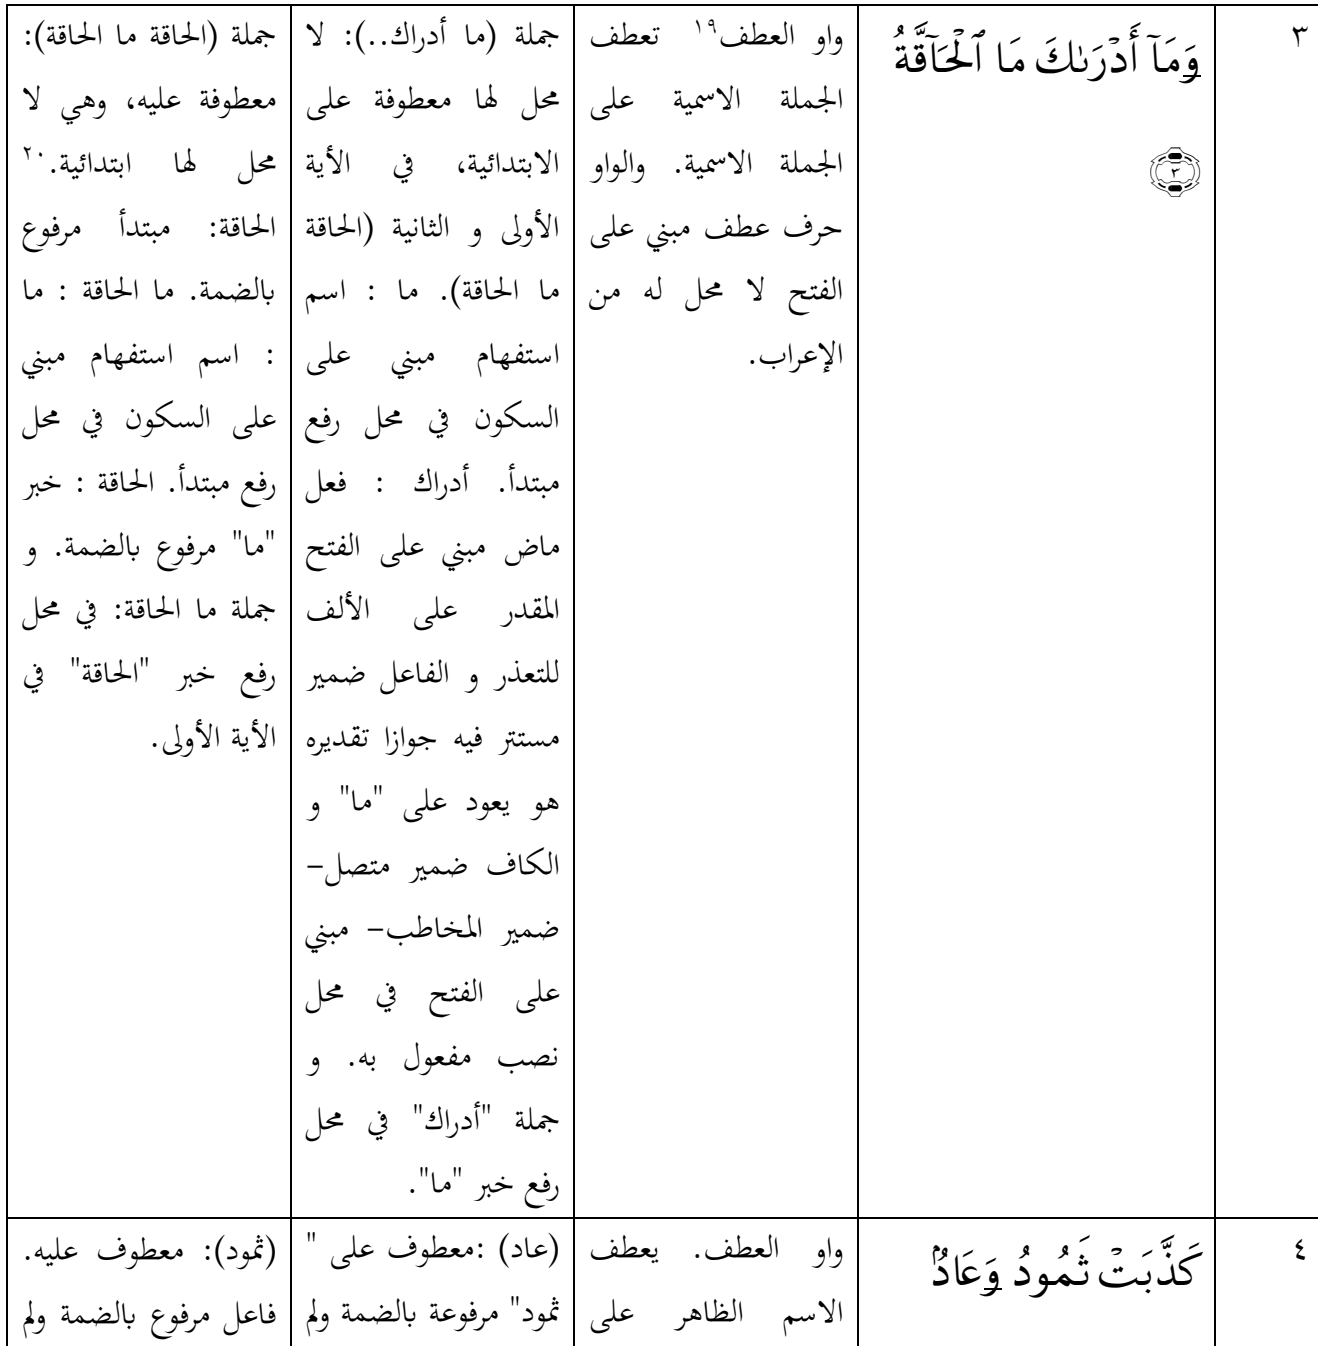 ٣
وَمَآ أَدْرَىٰكَ مَا ٱلْحَآقَّةُ
٣
واو العطف١٩ تعطف
الجملة الاسمية على
الجملة الاسمية. والواو
حرف عطف مبني على
الفتح لا محل له من
الإعراب.
جملة (ما أدراك..): لا
محل لها معطوفة على
الابتدائية، في الأية
الأولى و الثانية (الحاقة
ما الحاقة). ما : اسم
استفهام مبني على
السكون في محل رفع
مبتدأ. أدراك : فعل
ماض مبني على الفتح
المقدر على الألف
للتعذر و الفاعل ضمير
مستتر فيه جوازا تقديره
هو يعود على "ما" و
الكاف ضمير متصل–
ضمير المخاطب– مبني
على الفتح في محل
نصب مفعول به. و
جملة "أدراك" في محل
رفع خبر "ما".
جملة (الحاقة ما الحاقة):
معطوفة عليه، وهي لا
محل لها ابتدائية.٢٠
الحاقة: مبتدأ مرفوع
بالضمة. ما الحاقة : ما
: اسم استفهام مبني
على السكون في محل
رفع مبتدأ. الحاقة : خبر
"ما" مرفوع بالضمة. و
جملة ما الحاقة: في محل
رفع خبر "الحاقة" في
الأية الأولى.
٤
كَذَّبَتْ ثَمُودُ وَعَادٌۢ
واو العطف. يعطف
الاسم الظاهر على
(عاد) :معطوف على "
ثمود" مرفوعة بالضمة ولم
(ثمود): معطوف عليه.
فاعل مرفوع بالضمة ولم